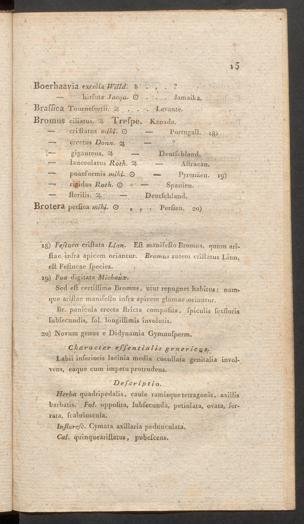 15
Boerhaavia excelsa Willd. ♄ . . . ?
— hirsuta Jacqu. ⊙ . . . Jamaika.
Brassica Tournefortii. ♃ . . . Levante.
Bromus ciliatus. ♃ Trespe. Kanada.
— cristatus mihi. ⊙ — Portugall. 18)
— erectus Donn. ♃ — ?
— giganteus. ♃ — Deutschland.
— lanceolatus Roth. ♃ — Astracan.
— poaeformis mihi. ⊙ — Pyrenäen. 19)
— rigidus Roth. ⊙ — Spanien.
— sterilis. ♃ — Deutschland.
Brotera persica mihi. ⊙ . . Persien. 20)
18) Festuca cristata Linn. Est manifesto Bromus, quum ari-
stae infra apicem oriantur. Bromus autem cristatus Linn.
est Festucae species.
19) Poa digitata Michaux.
Sed est certissime Bromus, utut repugnet habitus: nam-
que aristae manifesto infra apicem glumae oriuntur.
Br. panicula erecta stricta composita, spiculis sexfloris
subsecundis, fol. longissimis involutis.
20) Novum genus e Didynamia Gymnosperm.
Character essentialis genericus.
Labii inferioris lacinia media cucullata genitalia invol-
vens, eaque cum impetu protrudens.
Descriptio.
Herba quadripedalis, caule ramisque tetragonis, axillis
barbatis. Fol. opposita, subsecunda, petiolata, ovata, ser-
rata, scabriuscula.
Infloresc. Cymata axillaria pedunculata.
Cal. quinquearistatus, pubescens.